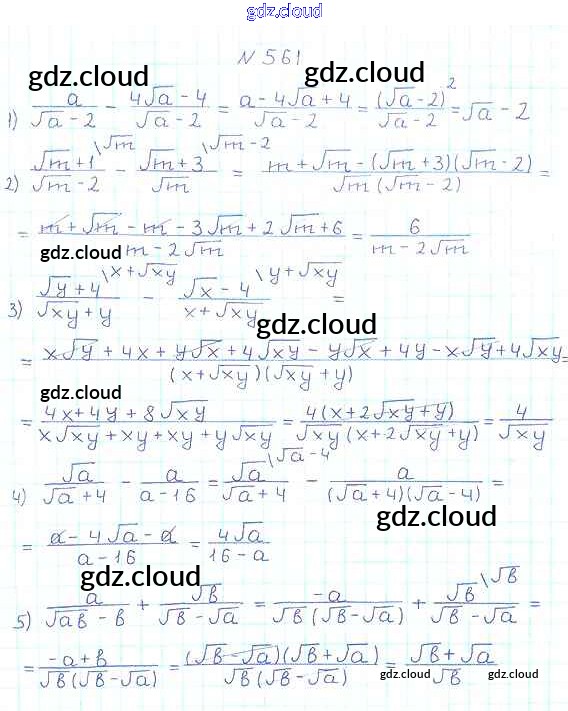 gdz.cloud
N 561
gdz.cloud gdz.cloud
1) a/(√a - 2) - (4√a - 4)/(√a - 2) = (a - 4√a + 4)/(√a - 2) = (√a - 2)²/(√a - 2) = √a - 2
2) (√m + 1)/(√m - 2) \√m - (√m + 3)/√m \√m - 2 = (m + √m - (√m + 3)(√m - 2))/(√m(√m - 2)) =
= (m + √m - m - 3√m + 2√m + 6)/(m - 2√m) = 6/(m - 2√m)
gdz.cloud
3) (√y + 4)/(√xy + y) \x + √xy - (√x - 4)/(x + √xy) \y + √xy =
gdz.cloud
= (x√y + 4x + y√x + 4√xy - y√x + 4y - x√y + 4√xy)/((x + √xy)(√xy + y)) =
gdz.cloud
= (4x + 4y + 8√xy)/(x√xy + xy + xy + y√xy) = 4(x + 2√xy + y)/(√xy(x + 2√xy + y)) = 4/√xy
4) √a/(√a + 4) - a/(a - 16) = √a/(√a + 4) \√a - 4 - a/((√a + 4)(√a - 4)) =
gdz.cloud
= (a - 4√a - a)/(a - 16) = 4√a/(16 - a)
gdz.cloud
5) a/(√ab - b) + √b/(√b - √a) = -a/(√b(√b - √a)) + √b/(√b - √a) \√b =
= (-a + b)/(√b(√b - √a)) = (√b - √a)(√b + √a)/(√b(√b - √a)) = (√b + √a)/√b
gdz.cloud gdz.cloud